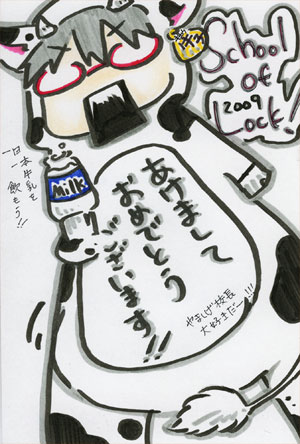 School
of
2009
Lock!
一日
一本牛乳を
飲もう!!
Milk
あけまして
おめでとう
ございます!!
やましげ校長
大好きだー!!!